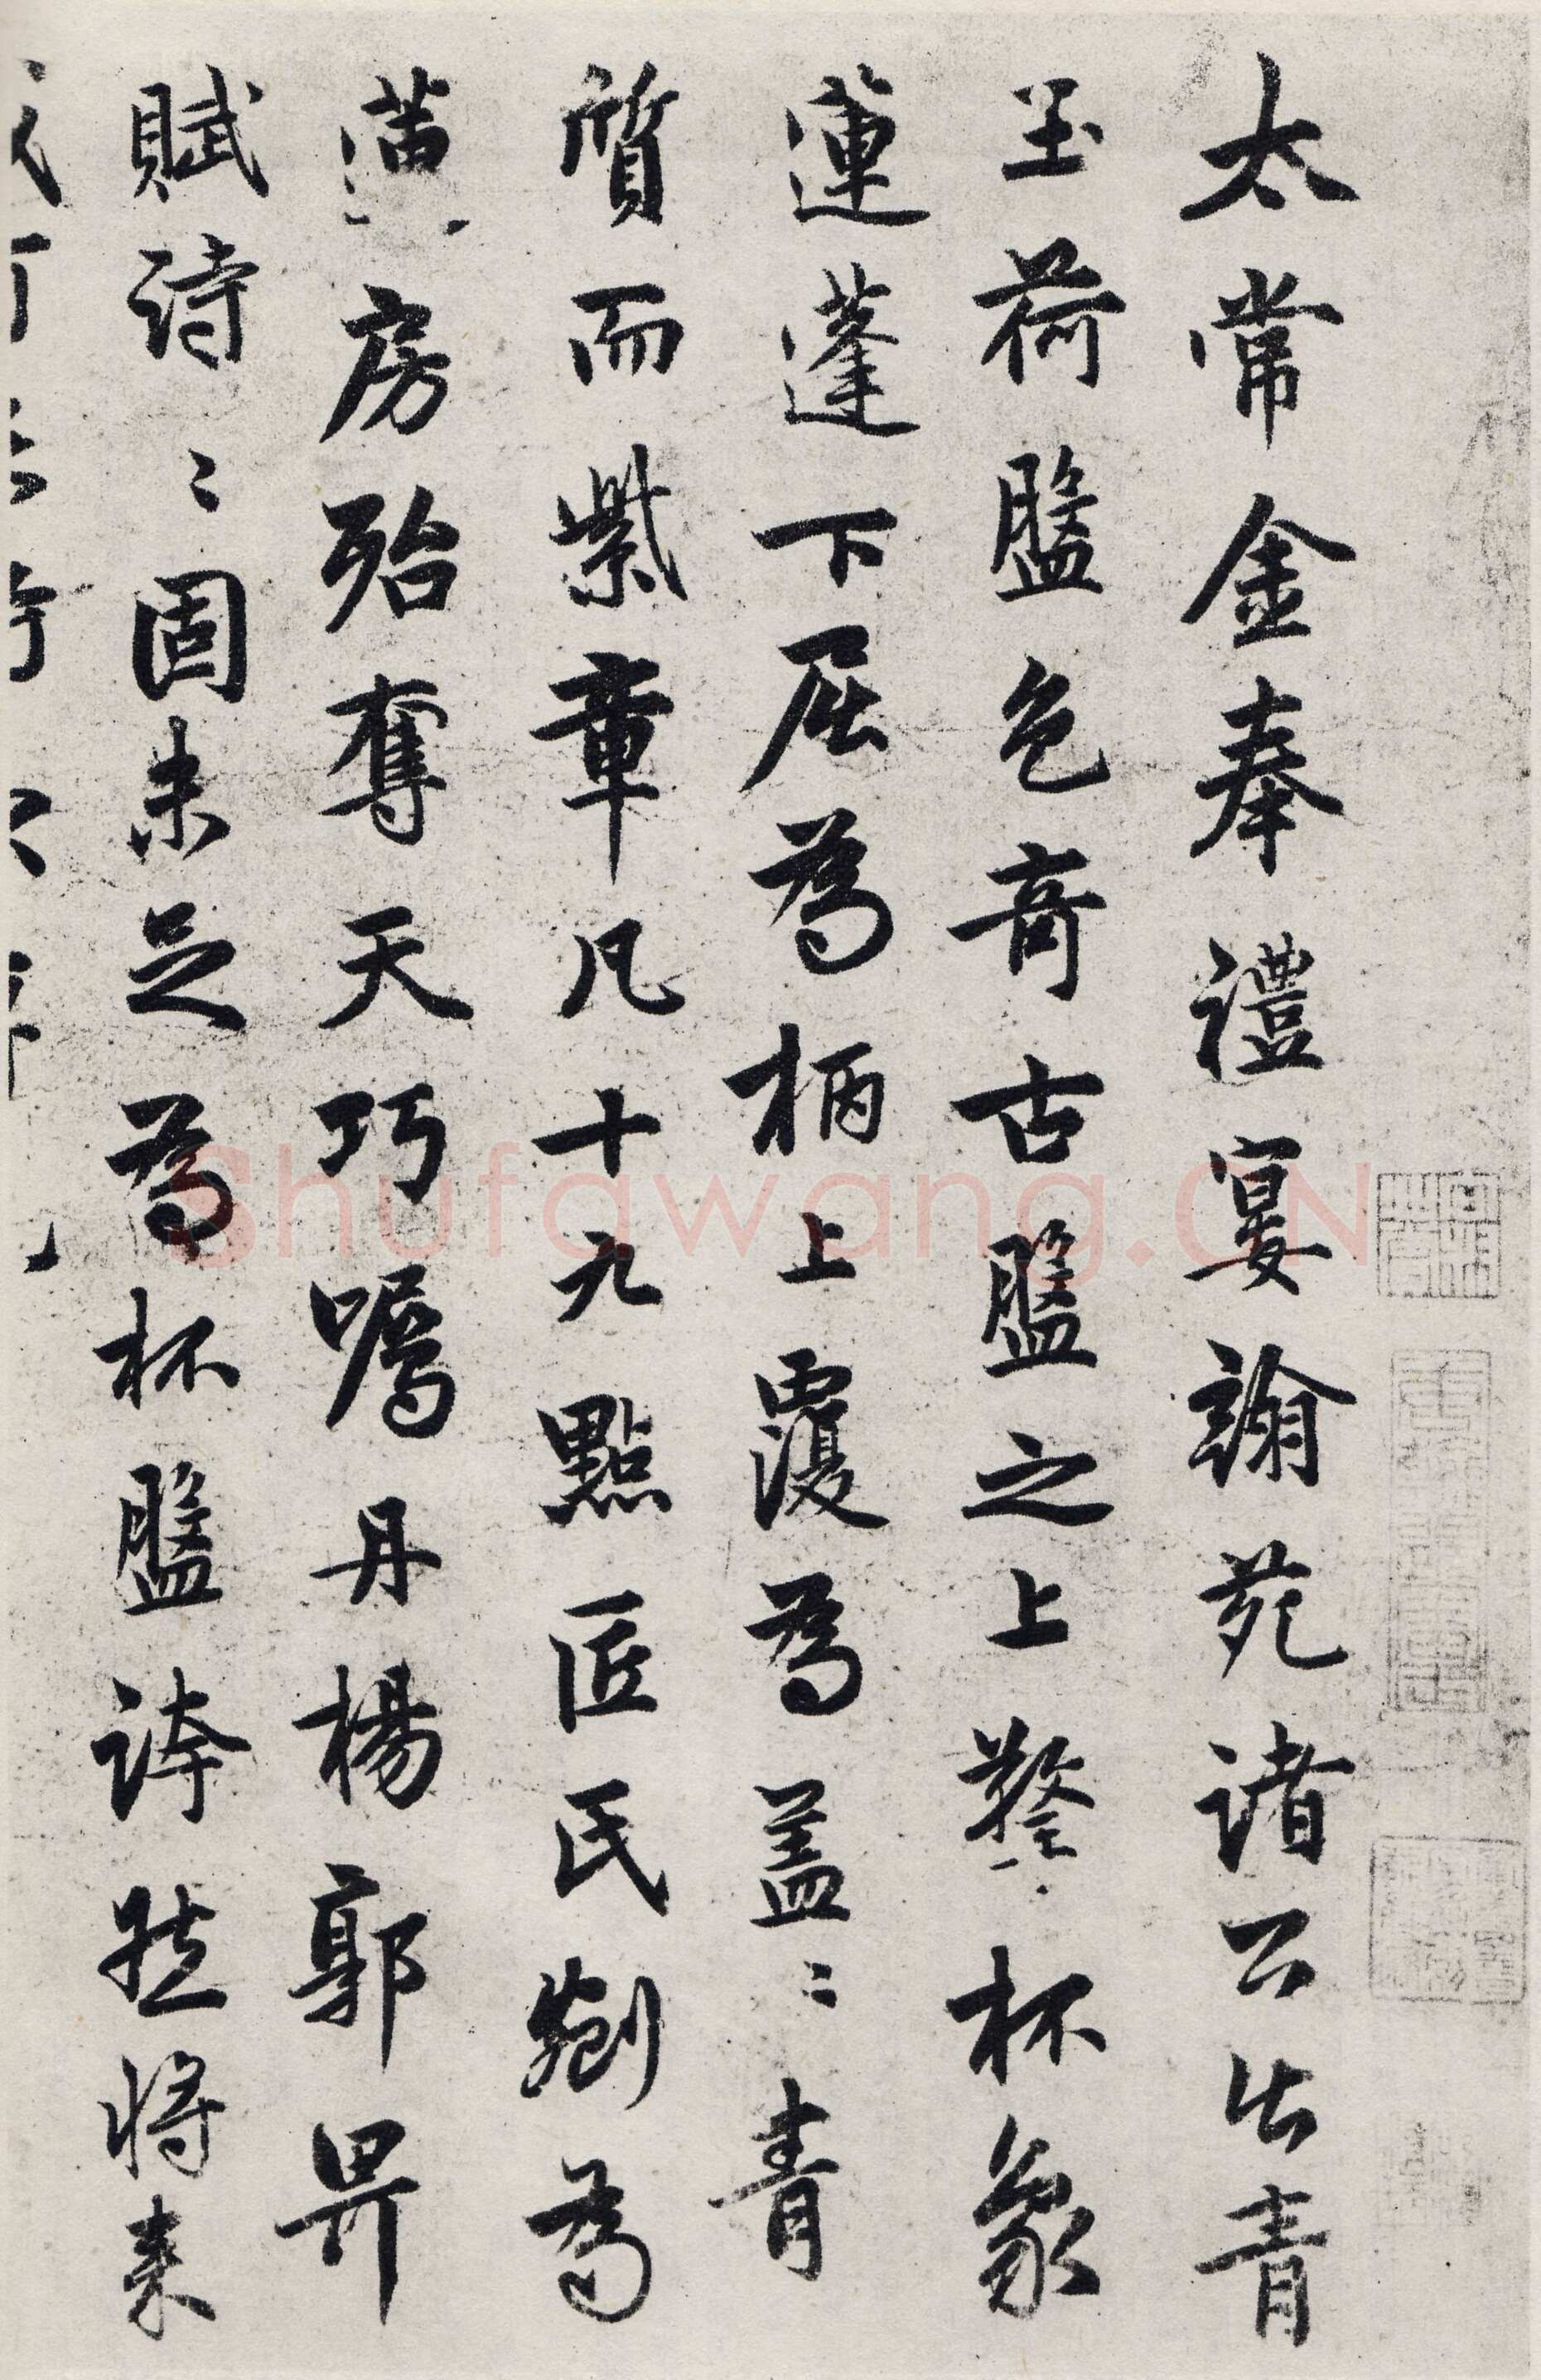 太常金奉禮宴翰苑諸公出青
玉荷盤色奇古盤之上擎杯象
蓮蓬下屈為柄上覆為蓋〻青
質而紫章凡十九點匠氏劌為
黃房殆奪天巧囑丹楊郭畀
賦詩〻固未足為杯盤誇然將来
Shufawang.CN